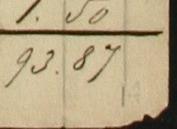 1. 50
93.87